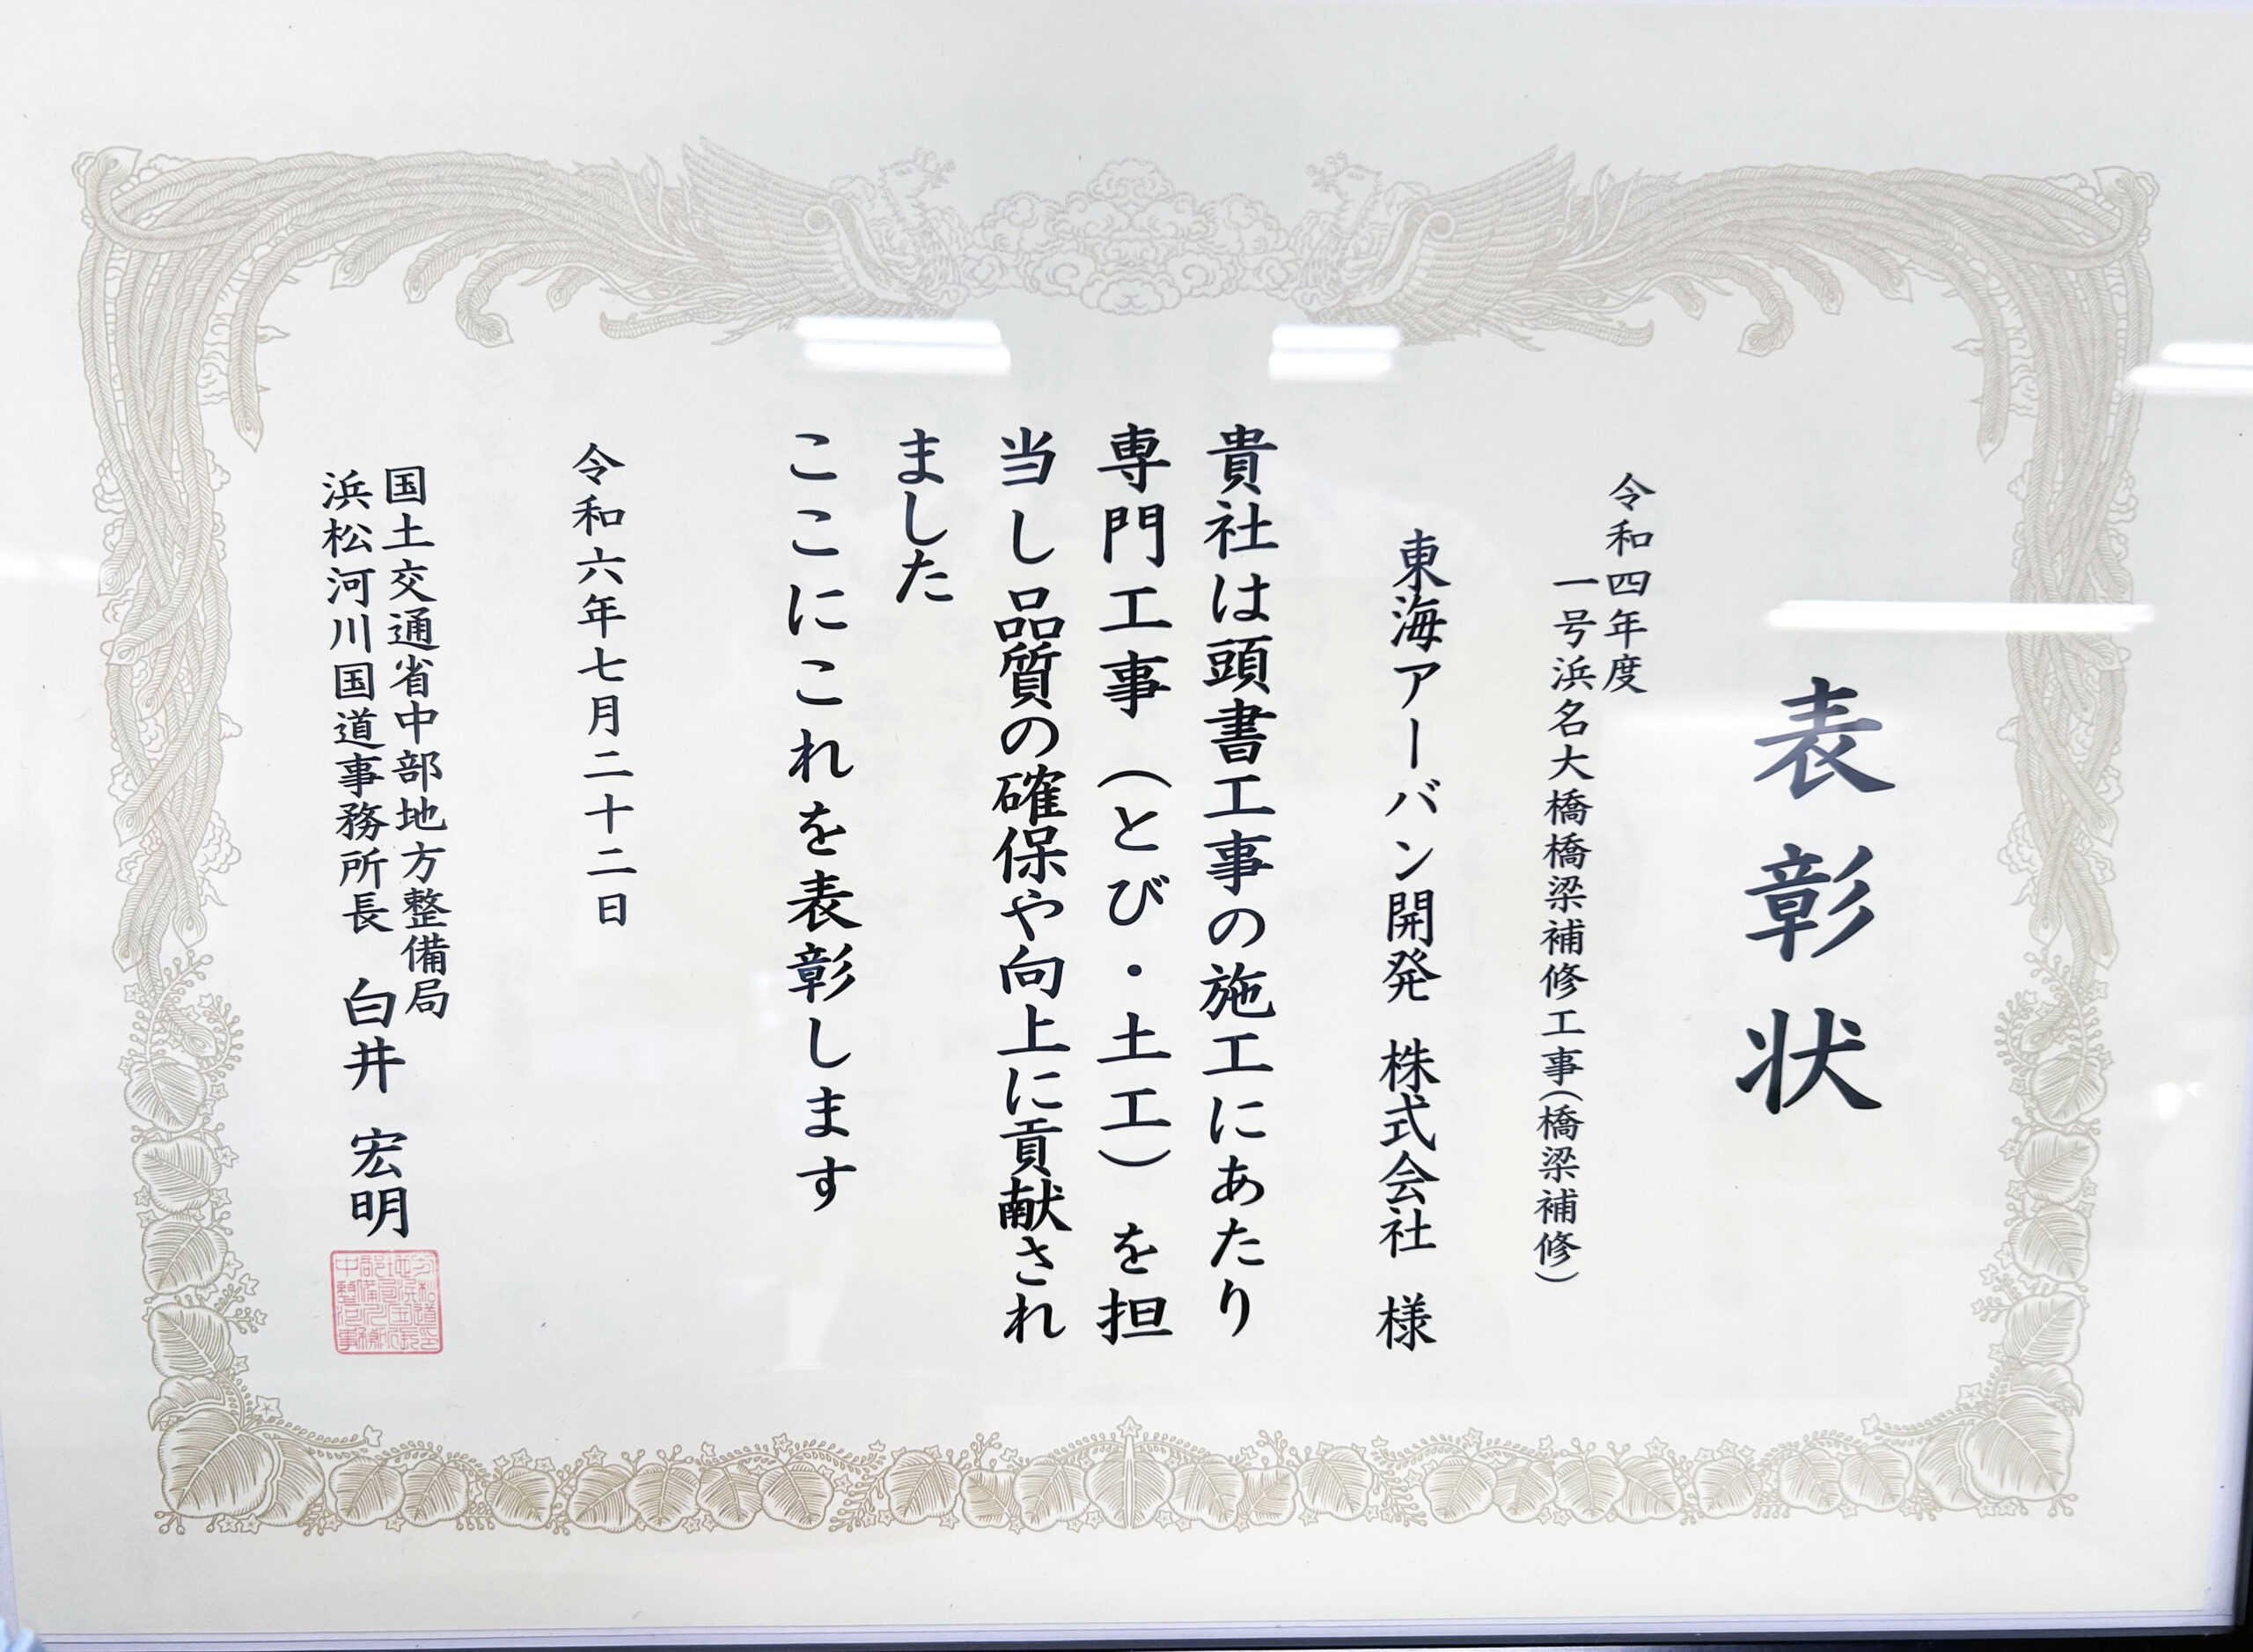 表彰状
令和四年度
一号浜名大橋橋梁補修工事(橋梁補修)
東海アーバン開発 株式会社 様
貴社は頭書工事の施工にあたり
専門工事(とび・土工)を担
当し品質の確保や向上に貢献され
ました
ここにこれを表彰します
令和六年七月二十二日
国土交通省中部地方整備局
浜松河川国道事務所長 白井 宏明